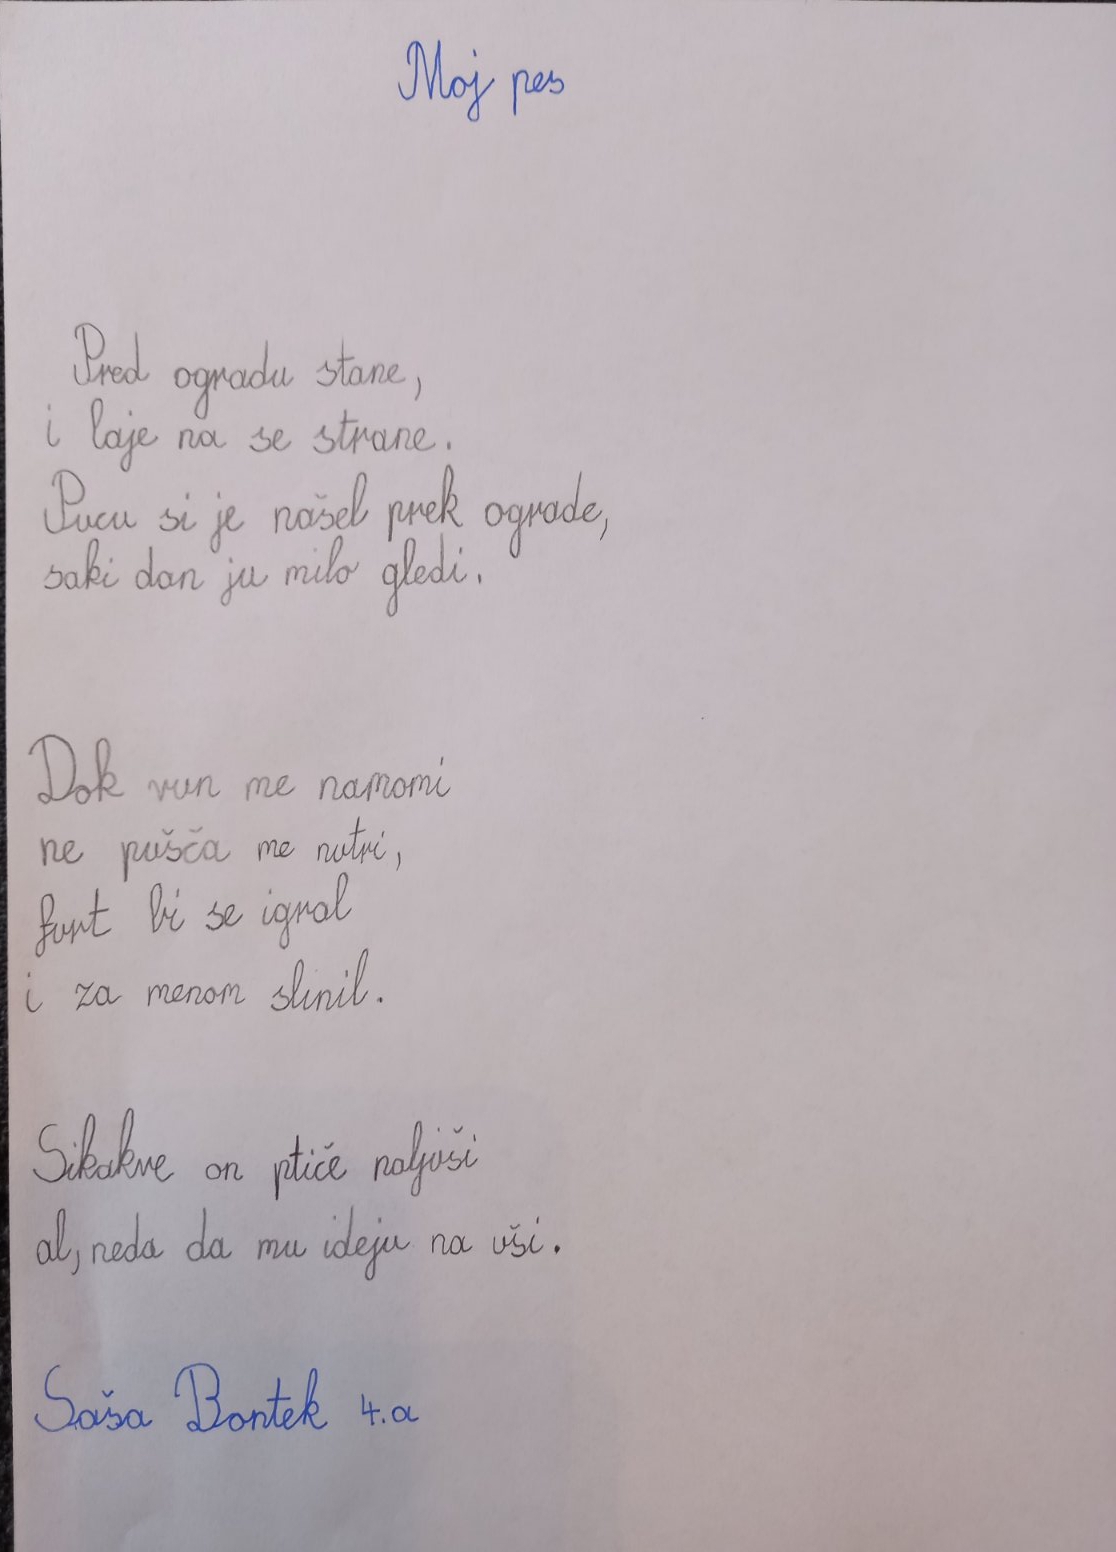 Moj pes
Pred ogradu stane,
i laje na se strane.
Pucu si je našel prek ograde,
saki dan ju milo gledi.
Dok vun me namomi
ne pušča me nutri,
furt bi se igral
i za menom slinil.
Sikakve on ptiče naljuši
al, neda da mu ideju na vši.
Saša Bontek 4.a